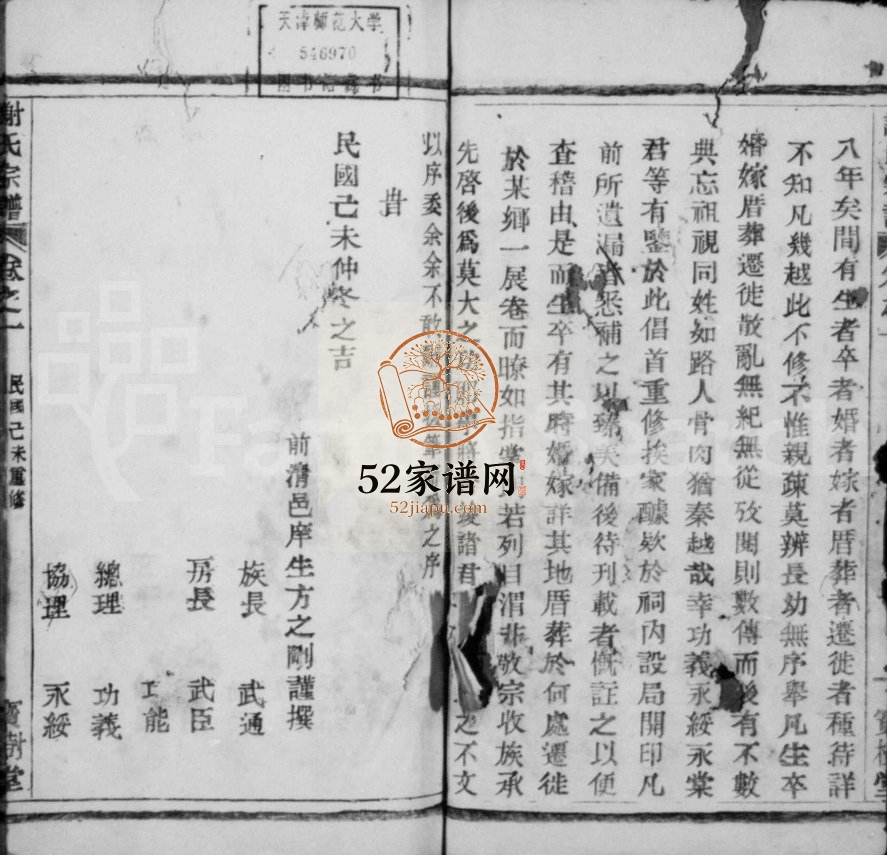 八年矣間有生者卒者婚者嫁者厝葬者遷徙者種待詳
不知凡幾越此不修不惟親疎莫辨長幼無序舉凡生卒
婚嫁厝葬遷徙散亂無紀無從攷閱則數傳而後有不數
典忘祖視同姓如路人骨肉猶秦越哉幸功義永綏永棠
君等有鑒於此倡首重修挨家醵欵於祠內設局開印凡
前所遺漏者悉補之以臻美備後待刊載者慨註之以便
查稽由是而生卒有其時婚嫁詳其地厝葬於何處遷徙
於某鄉一展卷而暸如指掌若列目渭非敬宗收族承
先啓後爲莫大之諸君之不文
以序委余余不敢之序
旹
民國己未仲冬之吉
前清邑庠生方之剛謹撰
族長 武通
房長 武臣
工能
總理 功義
協理 永綏
謝氏宗譜 卷之一 民國己未重修 寶樹堂
天津師范大学
546970
图书馆藏书
52家谱网
52jiapu.com